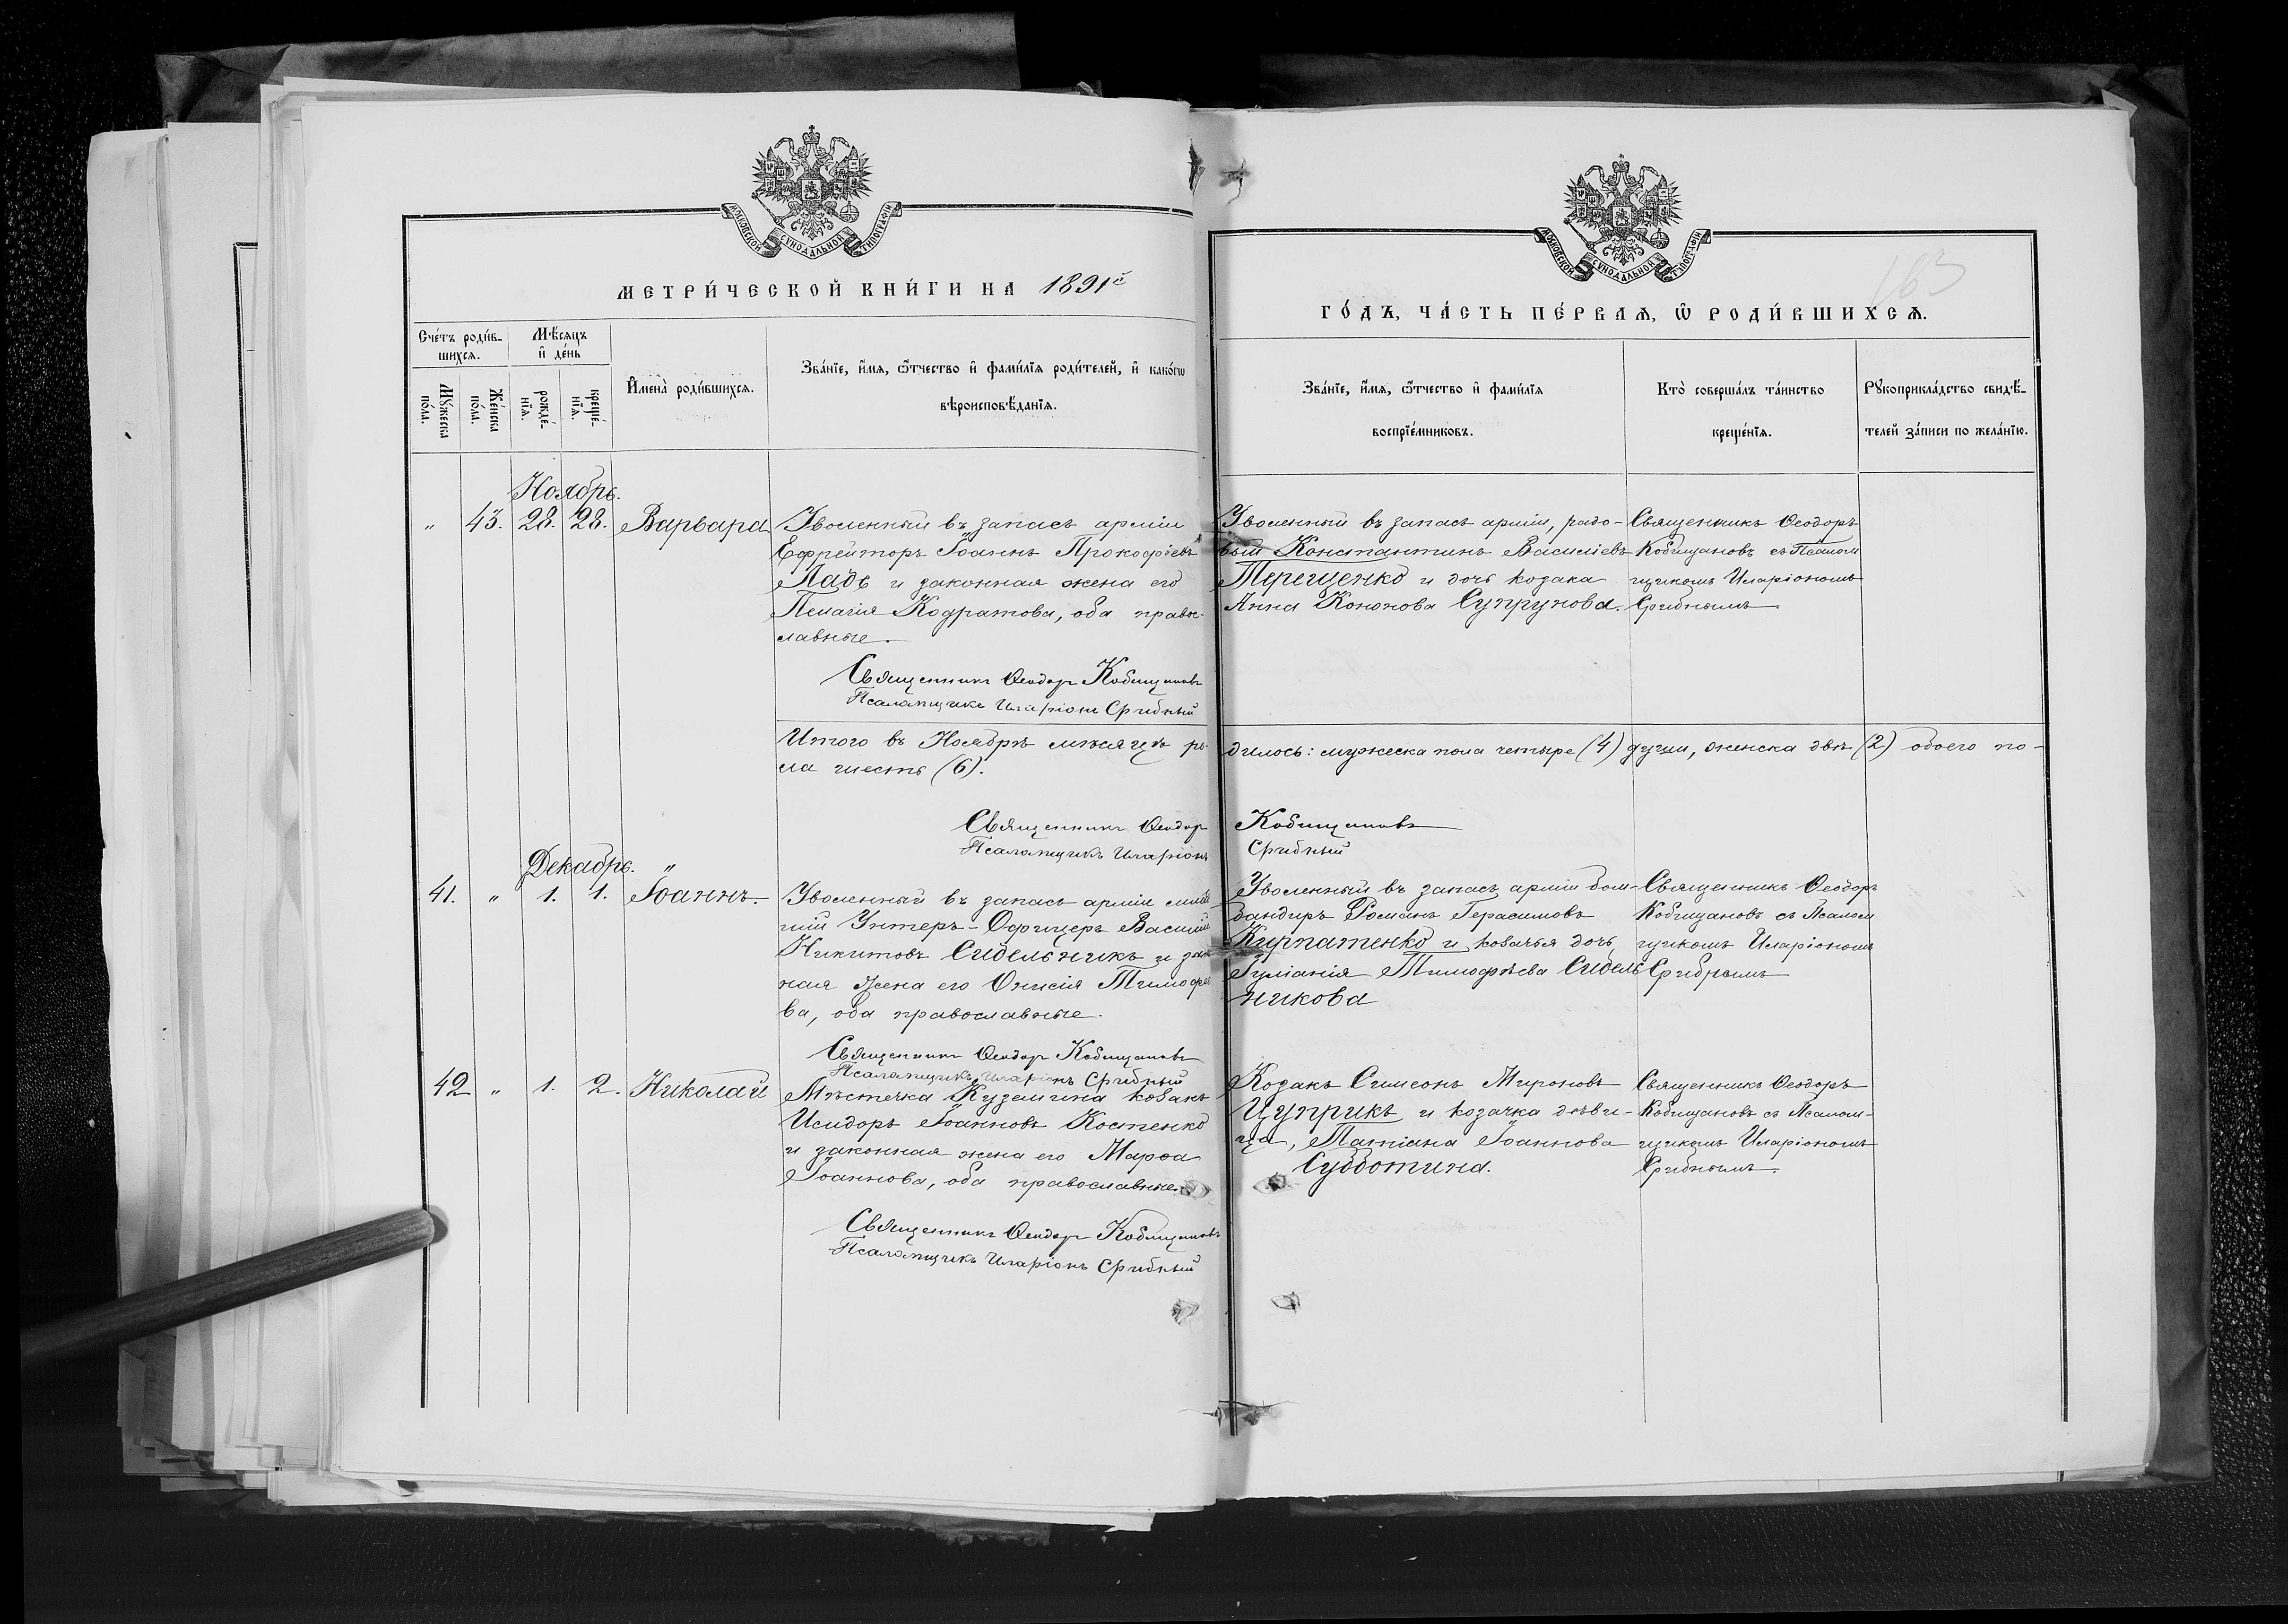 МОСКОВСКОЙ СѴНОДАЛЬНОЙ ТИПОГРАФІИ
МЕТРИ́ЧЕСКОЙ КНИ́ГИ НА 1891й
Сче́тъ роди́в-
шихся.
Мѣ́сяцъ
и҆ де́нь
Мꙋ́жеска
по́ла.
Же́нска
по́ла.
рожде́-
нїѧ.
креще́-
нїѧ.
И҆мена̀ роди́вшихсѧ.
Зва́нїе, и҆́мѧ, ѻ҆́тчество и҆ фами́лїѧ роди́телей, и҆ како́гѡ
вѣроисповѣ́данїѧ.
Ноябрь.
„ 43. 28. 28. Варвара
Уволенный въ запасъ арміи
Ефрейторъ Іоаннъ Прокофіевъ
Ладь и законная жена его
Пелагія Кодратова, оба право-
славные.
Священникъ Ѳеодоръ Кобищановъ
Псаломщикъ Иларіонъ Срибный
Итого въ Ноябрѣ мѣсяцѣ ро-
ла шесть (6).
Священникъ Ѳеодоръ
Псаломщикъ Иларіонъ
Декабрь. „
41. „ 1. 1. Іоаннъ.
Уволенный въ запасъ арміи млад
шій Унтеръ-Офицеръ Василій
Никитовъ Сидельникъ и зако
ная жена его Онисія Тимофее
ва, оба православные.
Священникъ Ѳеодоръ Кобищановъ
Псаломщикъ Иларіонъ Срибный
42 „ 1. 2. Николай
Мѣстечка Куземина козакъ
Исидоръ Іоанновъ Костенко
и законная жена его Марѳа
Іоаннова, оба православные.
Священникъ Ѳеодоръ Кобищановъ
Псаломщикъ Иларіонъ Срибный
МОСКОВСКОЙ СѴНОДАЛЬНОЙ ТИПОГРАФІИ
163
ГО́ДЪ, ЧА́СТЬ ПЕ́РВАѦ, Ѡ҆ РОДИ́ВШИХСѦ.
Зва́нїе, и҆́мѧ, ѻ҆́тчество и҆ фами́лїѧ
воспрїе́мниковъ.
Кто̀ соверша́лъ та́инство
креще́нїѧ.
Рꙋкоприкла́дство свидѣ́-
телей за́писи по жела́нїю.
Уволенный въ запасъ арміи, рядо-
вый Константинъ Василіевъ
Терещенко и дочь козака
Анна Кононова Супрунова.
Священникъ Ѳеодоръ
Кобищановъ съ Псалом
щикомъ Иларіономъ
Срибнымъ
дилось: мужеска пола четыре (4) души, женска двѣ (2) обоего по-
Кобищановъ
Срибный
Уволенный въ запасъ арміи бом-
бандиръ Романъ Герасимовъ
Кирпатенко и козачья дочь
Іуліанія Тимофѣева Сидель
никова
Священникъ Ѳеодоръ
Кобищановъ съ Псалом
щикомъ Иларіономъ
Срибнымъ
Козакъ Симеонъ Мироновъ
Цуприкъ и козачка дѣви-
ца, Татіана Іоаннова
Субботина.
Священникъ Ѳеодоръ
Кобищановъ съ Псалом-
щикомъ Иларіономъ
Срибнымъ.